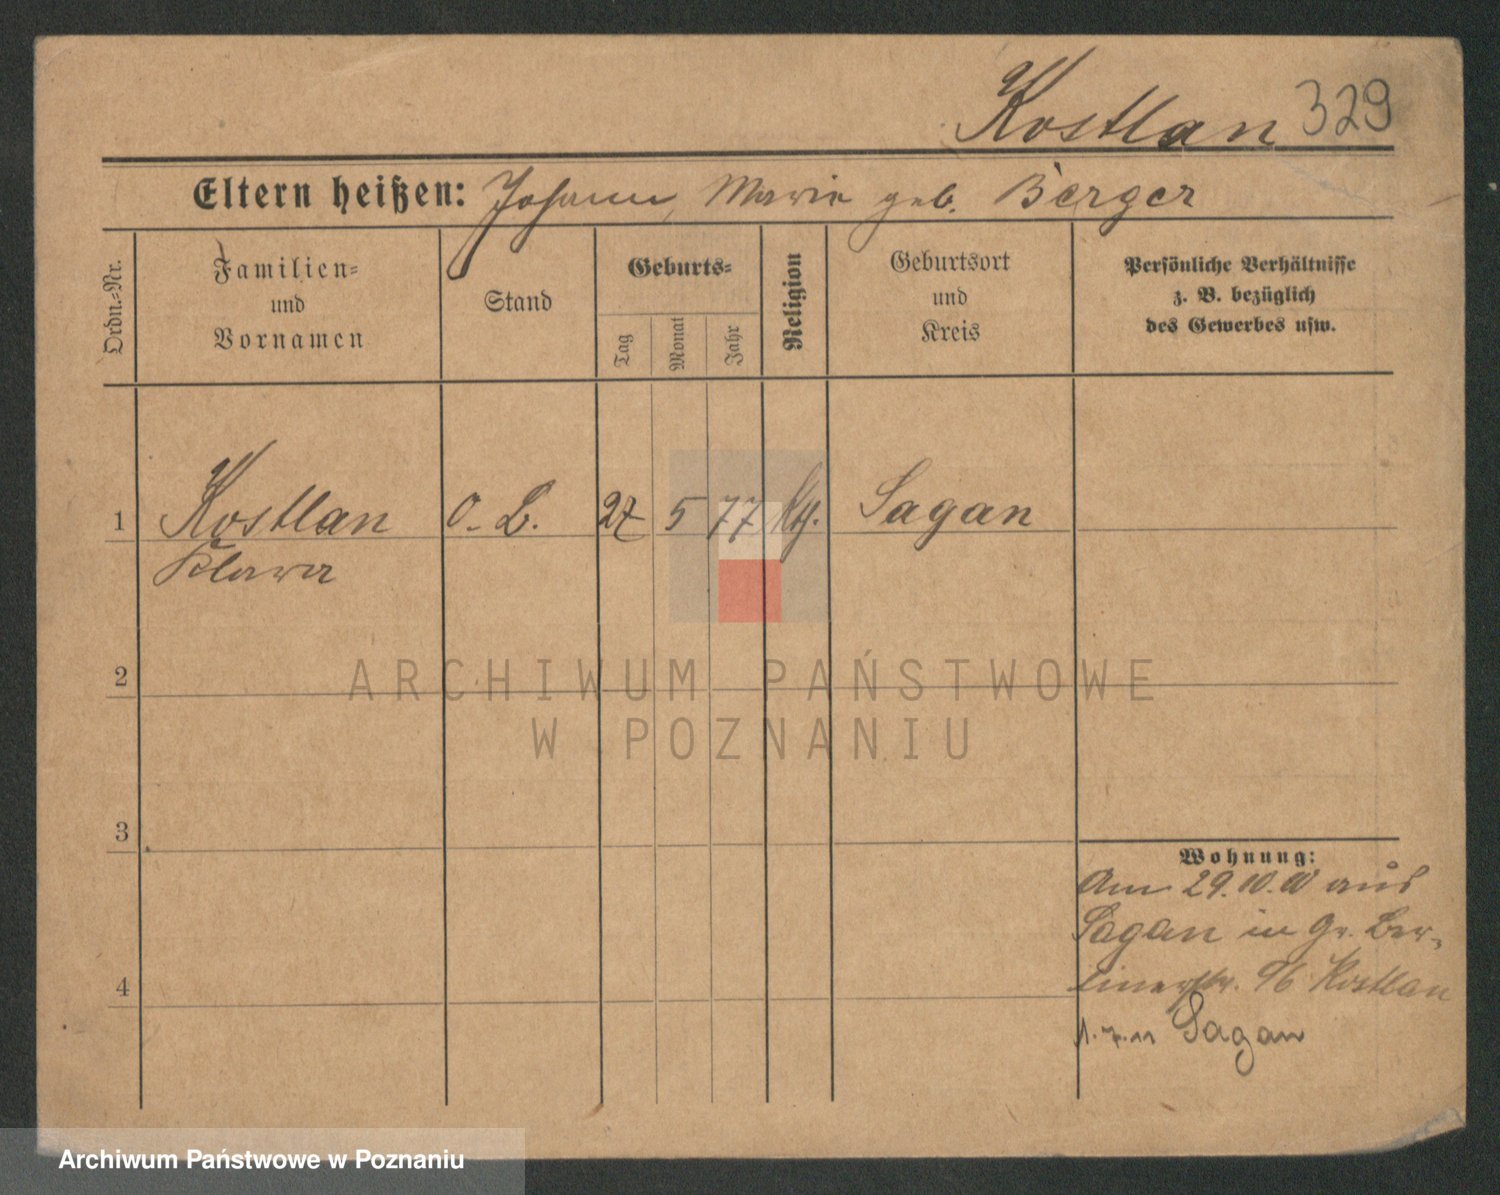 Kostlan 329
Eltern heißen: Johann, Marie geb. Berger
Ordn.-Nr.
Familien-
und
Vornamen
Stand
Geburts-
Tag
Monat
Jahr
Religion
Geburtsort
und
Kreis
Persönliche Verhältnisse
z. B. bezüglich
des Gewerbes usw.
1 Kostlan O. L. 27 5 77 Kth. Sagan
Klara
2
ARCHIWUM PAŃSTWOWE
W POZNANIU
3
Wohnung:
Am 29.10.00 aus
Sagan in Gr. Ber-
linerstr. 96 Kostlan
4
Sagan
Archiwum Państwowe w Poznaniu